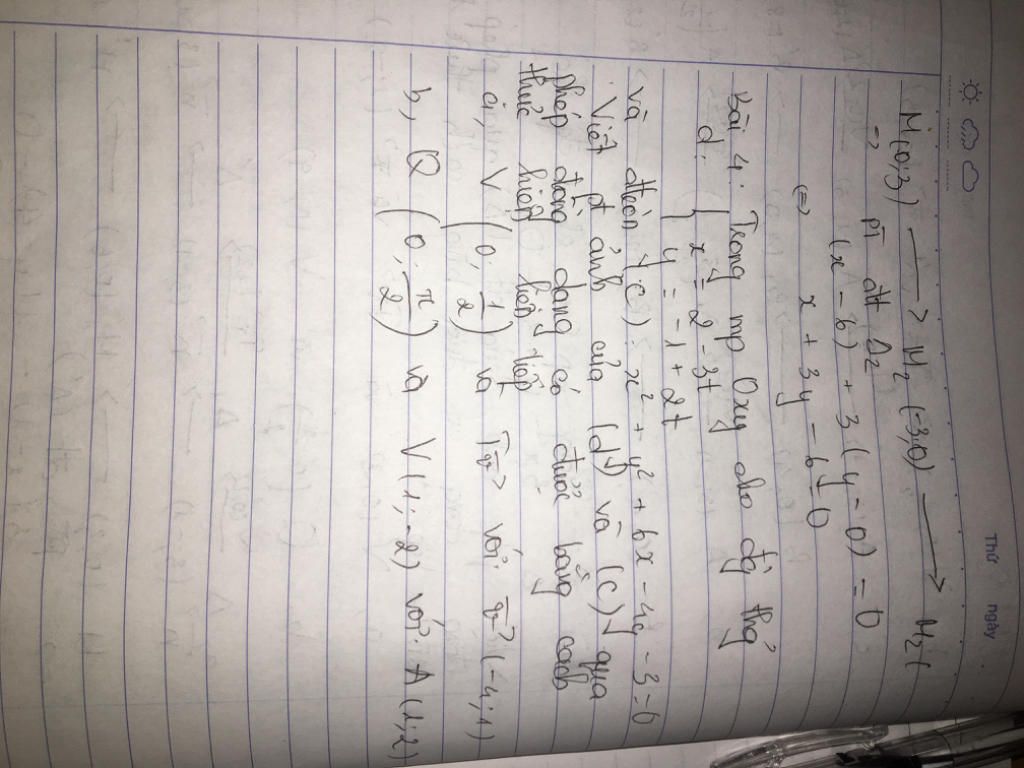 Thứ ngày
M(0;3) ⟶ M₁ (-3;0) ⟶ M₂(
=> pt đt Δ₂
(x - 6) + 3 (y - 0) = 0
<=> x + 3y - 6 = 0
Bài 4: Trong mp Oxy cho đg thg
d: { x = 2 - 3t
{ y = -1 + 2t
và đtròn (C): x² + y² + 6x - 4y - 3 = 0
Viết pt ảnh của (d) và (C) qua
phép đồng dạng có được bằng cách
thực hiện liên tiếp
a, V (0, 1/2) và Tv⃗ với v⃗ (-4;1)
b, Q (0, π/2) và V(1;-2) với A(1;2)